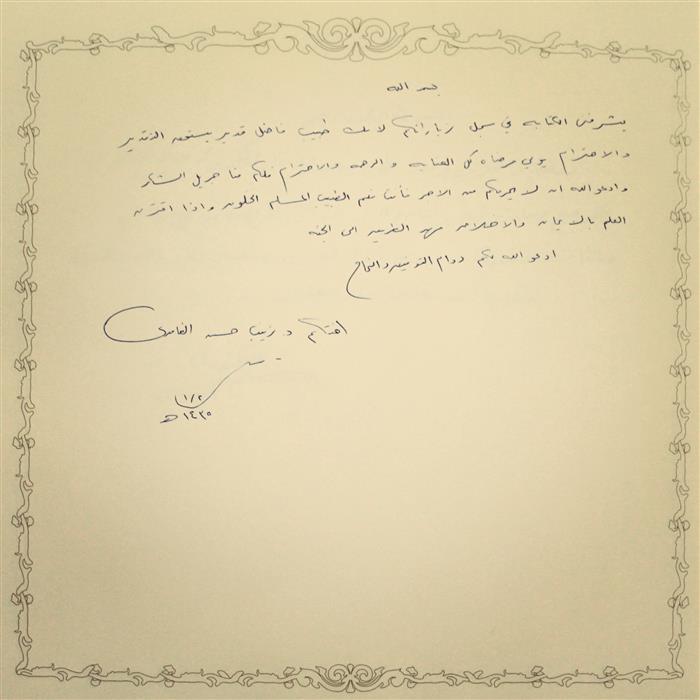 بسم الله
يشرفني الكتابة في سجل زياراتكم لأنك طبيب فاضل قدير يستحق التقدير
والاحترام يولي مرضاه كل العناية والرحمة والاحترام فلكم منا جزيل الشكر
وادعو الله ان لا يحرمكم من الاجر فأنت نعم الطبيب المسلم الخلوق واذا اقترن
العلم بالايمان والاخلاص مهد الطريق الى الجنة
ادعو الله لكم دوام التوفيق والنجاح
اختكم د. زينب حسن الغامدي
١١/٢
١٤٣٥ هـ